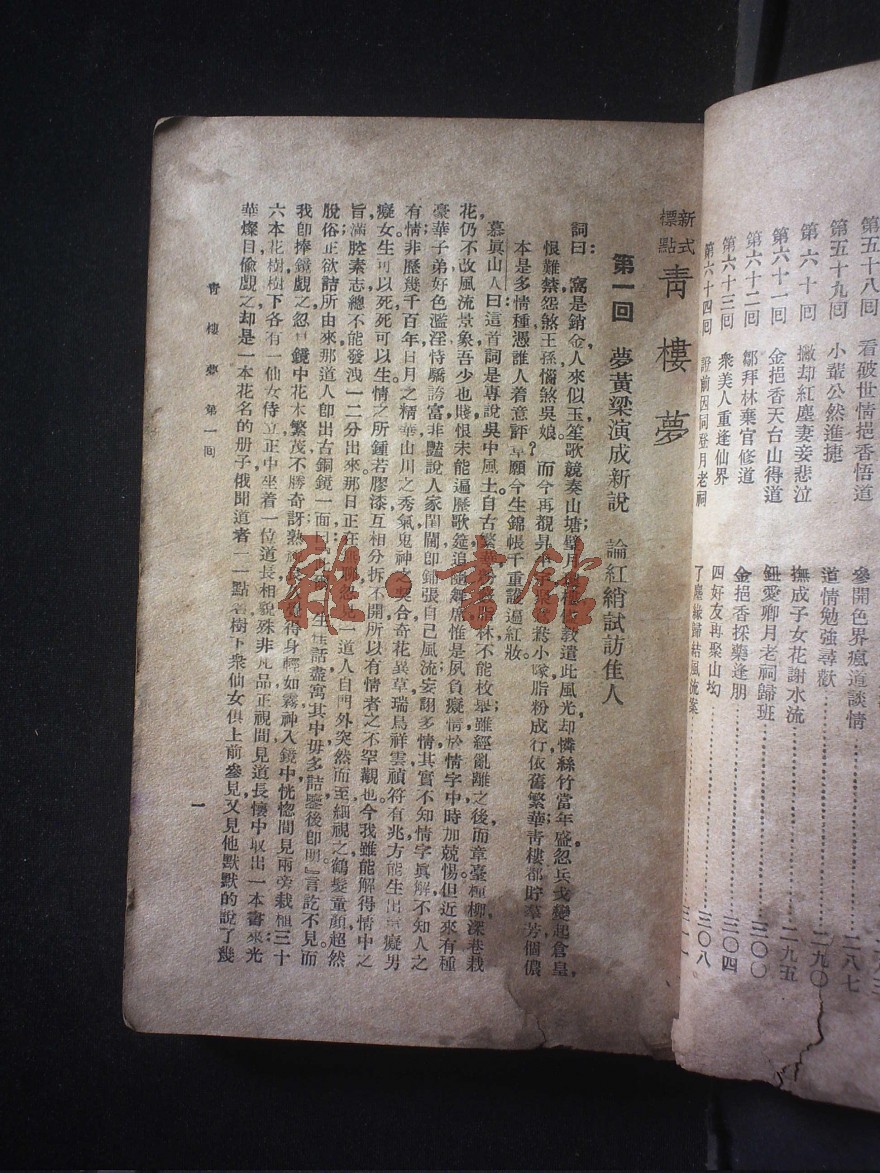 第五十八回 看破世情挹香悟道 參開色界瘋道談情……二八七
第五十九回 小輩公然進捷 道情勉強尋歡……二九〇
第六十回 撇却紅塵妻妾悲泣 撫成子女花謝水流……二九五
第六十一回 金挹香天台山得道 鈕愛卿月老祠歸班……三〇〇
第六十二回 鄒拜林棄官修道 金挹香採藥逢朋……三〇四
第六十三回 衆美人重逢仙界 四好友再聚山㘭……三〇八
第六十四回 證前因同登月老祠 了塵緣歸結風流案……三一一
新式標點 青樓夢
第一回 夢黃粱演成新說 論紅綃試訪佳人
詞曰：窩是銷金，人來似玉，笙歌競奏山塘。璧月遣此風光。却憐絲竹當年盛，忽兵戈變起倉皇，
恨難禁，怨煞王孫，惱煞吳娘。而今再覩昇小隊，脂粉成行，依舊繁華，青樓都貯羣芳。個儂
本是多情種，憑誰人着意評章？願今生，錦帳千重，護過紅妝。
慕眞山人曰：這首詞是專說吳中風土，自古繁華，不能枚舉。雖經亂離之後，而章臺種柳，深巷栽
花，仍不改風流景象。吾少也賤，恨未能遍歷歌筵，追隨舞席，惟是夙負癡情，於情字中時加兢惕。但近來有種
豪華子弟，好色濫淫，恃驕誇富，非豔說人家閨閫，卽鋪張自己風流，妄詡多情，其實不知情字眞解，不知人之
有情，非歷幾千百年日月之精華，山川之秀氣，鬼神之契合，奇花異草，瑞鳥祥雲，禎符有兆，方能生出癡男
癡女。生可以死，死可以生，情之所鍾，若膠漆互相分拆不開，所以有情者之不罕覯也。今我雖能解得情中之
旨，滿腔素志，總不能發洩一二分出來。那日正在一道人自門外突然而至，細視之，鶴髮童顏，超然
脫俗。正欲詰所由來，那道人卽出古銅鏡一面生佳話，盡寓其中，毋多詰，鑒後卽明。』言訖不見。而
我卽捧鏡覷之，忽見鏡中花木繁茂，不勝奇訝，熟視得身輕如霧，神入鏡中。恍惚間見兩旁栽植三十
六本花樹，樹下各有一仙女侍立，正中坐着一位道長，相貌殊非凡品。正視間，見道長懷中取出一本書來，光
華燦目，偷覷之，却是一本花名的册子。俄聞道者一一點名，樹下衆仙女俱上前參見，又見他默默的說了幾
青樓夢 第一回
一
雜·書館